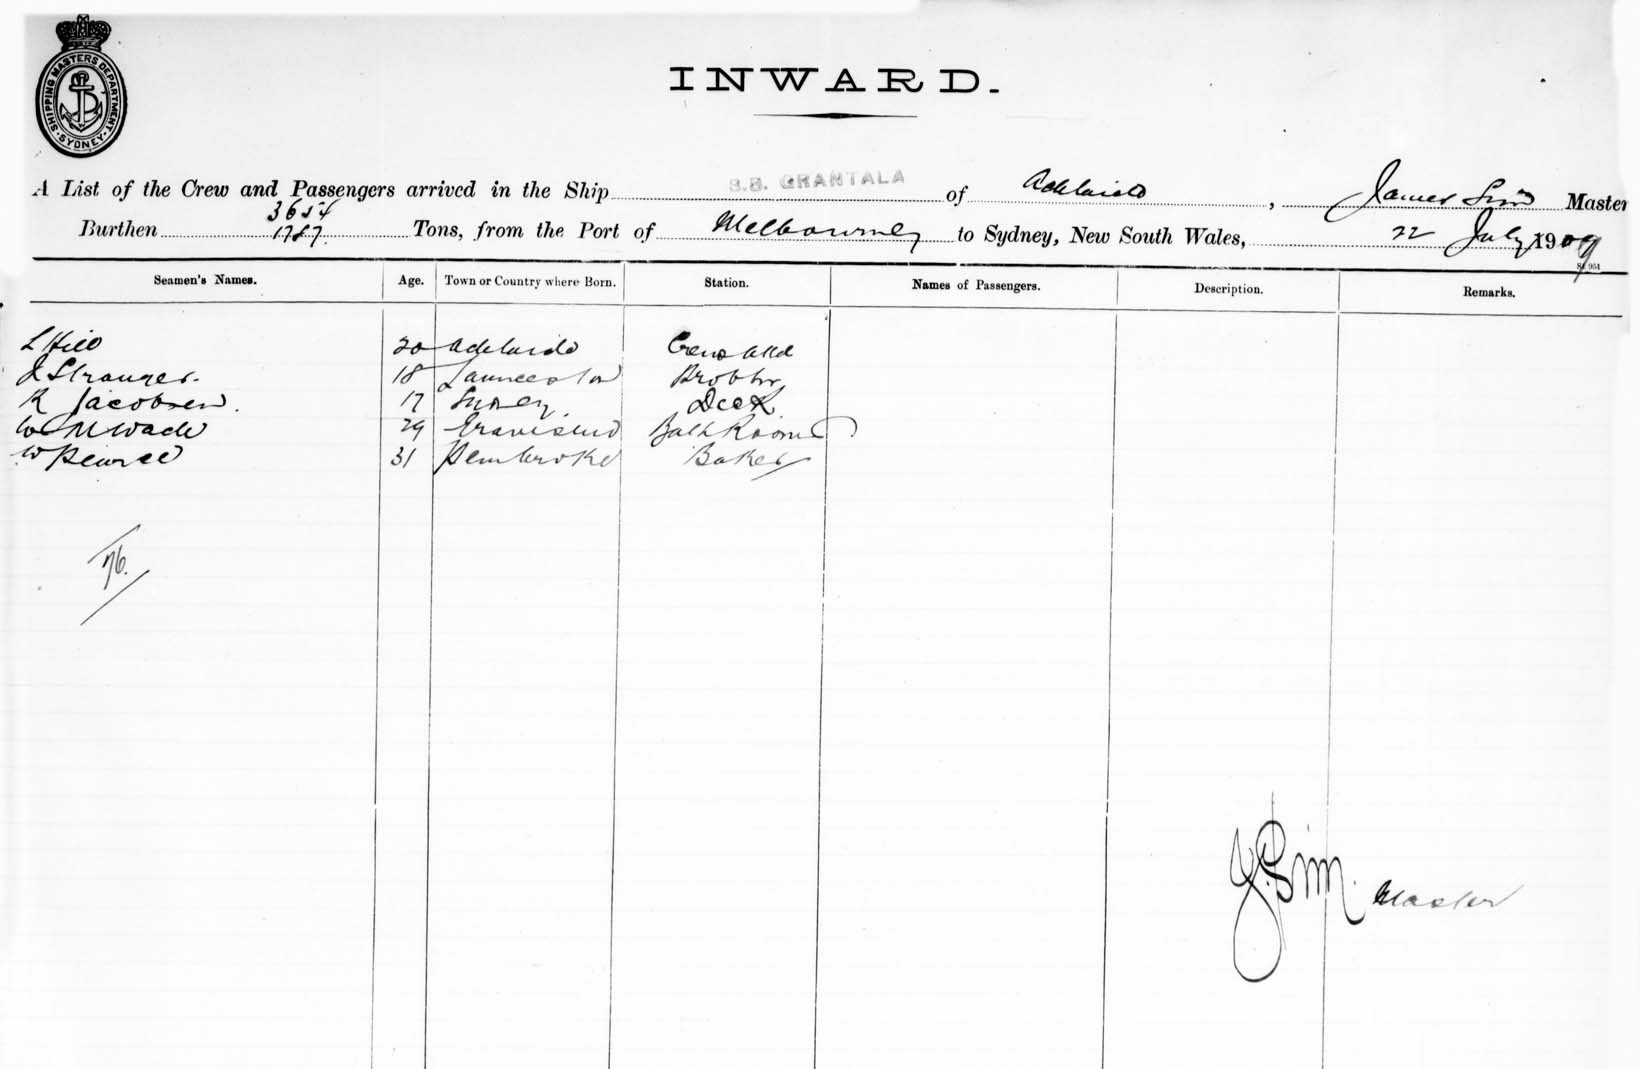 SHIPPING MASTERS DEPARTMENT
SYDNEY
INWARD.
A List of the Crew and Passengers arrived in the Ship S.S. GRANTALA of Adelaide, James Sim Master
3654
Burthen 1787 Tons, from the Port of Melbourne to Sydney, New South Wales, 22 July 1909
Seamen's Names. Age. Town or Country where Born. Station. Names of Passengers. Description. Remarks.
L Hill 20 Adelaide
J Stranger. 18 Launceston
R Jacobsen. 17 Sydney Deck
29 Gravesend Bath Room
W Pearce 31 Pembroke Baker
76.
J. Sim. Master